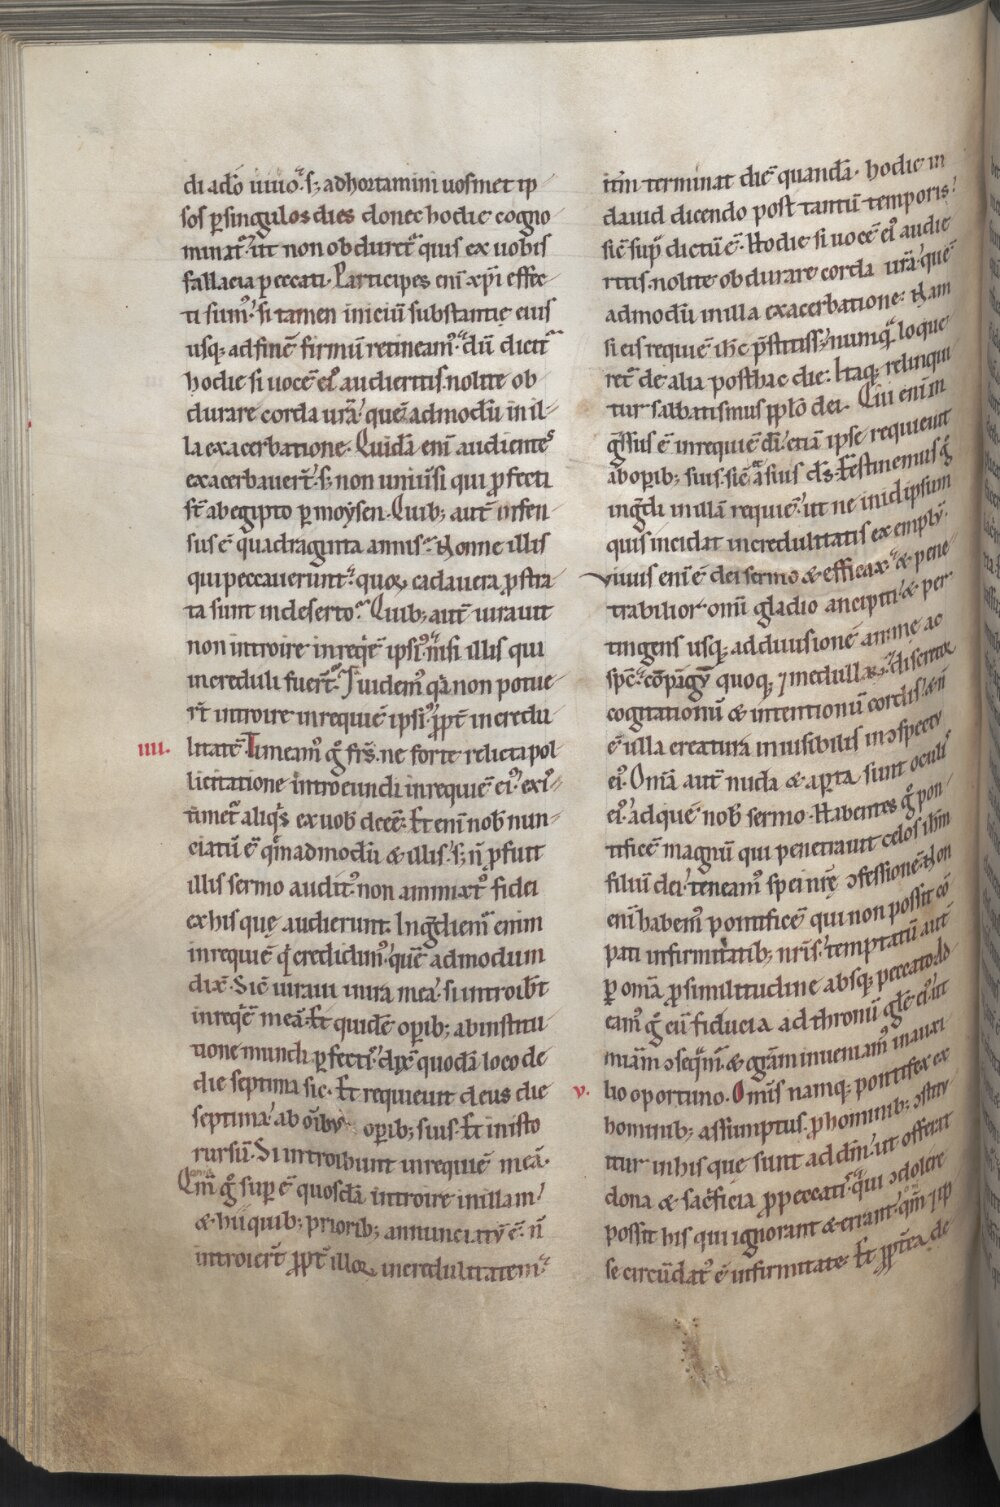 di a dō uiuo. s; adhortamini uosmet ip
sos ꝑ singulos dies donec hodie cogno
minat᷑. ut non obduret᷑ quis ex uobis
fallacia peccati. Participes eni᷑ xp̄i effec
ti sumꝰ. si tamen iniciū substantię eius
usq; ad finē firmū retineamꝰ. dū dicit᷑
hodie si uocē eiꝰ audieritis. nolite ob
durare corda ur̄a. quēadmodū in il
la exacerbatione. Quidā eni᷑ audientes
exacerbauer̄t. s; non uniūsi qui profecti
st̄ ab egipto ꝑ moẏsen. Quib; aut̄ infen
sus ē quadraginta annis. Nonne illis
qui peccauerunt. quoꝝ cadauera ꝓstra
ta sunt in deserto. Quib; aut̄ iurauit
non introire in reqiē ipsiꝰ. nisi illis qui
increduli fuer̄t. Et uidemꝰ qa non potue
rt̄ introire in requiē ipsiꝰ. ꝓpt̄ incredu
IIII. litatē. Timeamꝰ g̊ frs̄. ne forte relicta pol
licitatione introeundi in requiē eiꝰ. exi
timet᷑ aliqͥs ex uob̄ deeē. Et eni᷑ nob̄ nun
ciatū ē qm̄admodū & illis. s; n̄ ꝓfuit
illis sermo auditꝰ. non ammixtꝰ fidei
ex his quę audierunt. Ingdiem᷑ enim
in requiē qͥ credidimꝰ. quē admodum
dix̄. Sic̄ iuraui in ira mea. si introib̄t
in reqiē meā. Et quidē oꝑib; ab institu
tione mundi ꝑfectis. dix̄ quodā loco de
die septima sic. Et requieuit deus die
septima. ab om̄ib; oꝑib; suis. Et in isto
rursū. Si introibunt in requiē meā.
Qm̄ g̊ suꝑ ē quosdā introire in illam.
& hii quib; priorib; annunciatū ē. n̄
introiert̄ ꝓpt̄ illoꝝ incredulitatem.
itm̄ terminat diē quandā. hodie in
dauid dicendo post tantū temporis.
sic̄ sup̄ dictū ē. Hodie si uocē eiꝰ audie
ritis. nolite obdurare corda ur̄a. quē
admodū in illa exacerbatione. Nam
si eis requiē ih̄c p̄stitiss;. numq̄ loque
ret᷑ de alia posthac die. Itaq; relinqui
tur sabbatismus pplo dei. Qui eni᷑ in
gssus ē in requiē ei. etiā ipse requieuit
ab oꝑib; suis. sic̄ a suis ds̄. Festinemus g̊
ingdi in illā requiē. ut ne in idipsum
quis incidat incredulitatis exemplū.
Viuus eni᷑ ē dei sermo & efficax. & pene
trabilior om̄i gladio ancipiti. & per
tingens usq; ad diuisionē anime ac
spc̄. cōpagū quoq; ⁊ medullaꝝ. & discretor
cogitationū & intentionū cordis. & n̄
ē ulla creatura inuisibilis in ↄspectu
eiꝰ. Om̄ia aut̄ nuda & aꝑta sunt oculis
eiꝰ. ad quē nob̄ sermo. Habentes g̊ pon
tificē magnū qui penetrauit celos ih̄m
filiū dei. teneamꝰ spei nr̄ę ↄfessionē. Non
eni᷑ habemꝰ pontificē qui non possit cō
pati infirmitatib; nris̄. temptatū aut̄
ꝑ om̄ia ꝓ similitudine absq; peccato. Ad
eamꝰ g̊ cū fiducia ad thronū gl̄e eiꝰ. ut
miam̄ ↄseq̄mꝰ. & gr̄am inueniamꝰ in auxi
V. lio oportuno. Om̄is namq; pontifex ex
hominib; assumptus. pro hominib; ↄstitu
itur in his que sunt ad dm̄. ut offerat
dona & sacrificia ꝓ peccatis. qui ↄdolere
possit his qui ignorant & errant. qm̄ ⁊ ip
se circūdatꝰ ē infirmitate. Et ꝓpt̄ea de